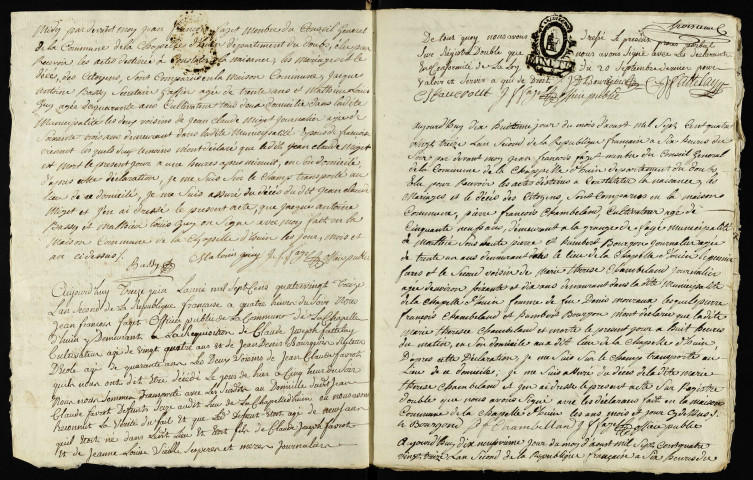 Midy par devant moy jean françois fajet Membre du Conseil General
de la Commune de la Chapelle d'huin departement du doubs, elue pour
Recevoir les actes destinés à Constater la naissance, les Mariages et le
décès des Citoyens, Sont Comparus en la maison Commune, jacque
antoine Bassy, Secretaire Greffier agé de trente ans et Mathieu Louis
Guy agé de quarante ans Cultivateur tous deux Domicilié dans ladite
Municipalité les deux voisins de jean Claude Miget journalier agé de
Soixante trois ans demeurant dans ladite Municipalité Epoux de françoise
lesquels deux temoins Mont déclaré que ledit jean Claude Miget
est Mort le present jour a une heures après minuit, en Son domicile
d'après cette déclaration, je me Suis Sur le Champ transporté au
lieu de ce domicile, je me Suis assuré du décès dudit jean Claude
Miget et j'en ai dressé le present acte, que jacque antoine
Bassy et Mathieu Louis Guy on Signé avec moy fait en la
Maison Commune de la Chapelle d'huin les jour, mois et
an ci dessus
Bassy Malouis guy J f fajet officier public
Aujourd'huy Treize juin Lanné mil Sept Cens quatrevingt Treize
Lan Second de la Republique françoise a quatre heures du Soir Nous
jean francois fajet Officier public de la Commune de La Chapelle
D'huin y Demeurant a La Requisition de Claude Joseph
Cultivateur agé de vingt quatre ans et de jean Denis Bourgeois
Décole agé de quarante ans Les Deux Voisins de jean Claude favrot
quils nous ont dit Etre décédé Le jour de hier a Cinq heures du Soir
Nous nous Sommes Transporté avec Les Susdits au Domicille dudit jean
Claude favrot Defunts Deux audit Lieu de La Chapelle d'huin ou nous avons
Reconnut La Verité du fait et que Led Defunt Etoit agé de neuf ans
quil Etoit né dans Ledit Lieu et Etoit fils de Claude Joseph favrot
et de jeanne Louise Vieille Ses pere et mere journalier
De tous quoy nous avons dressé le present
Sur Registre Double que nous avons Signé avec les Declarants
en Conformité de La Loy du 20 Septembre dernier pour
Valoir et Servir a qui de Droit
J f fajet officier public
Aujourdhuy dix huitieme jour du mois d'aoust mil Sept Cent quatre
vingt treize Lan Second de la Republique française a Six heures du
Soir par devant moy jean françois fajet membre du Conseil General
de la Commune de la Chappelle d'huin departement du doubs,
elue pour Recevoir les actes destinés a Constater la naissance, les
Mariages et le décès des Citoyens, Sont Comparus en la maison
Commune, pierre François Chambeland Cultivateur agé de
Cinquante neuf ans, demeurant a la grange de municipalité
de et humbert Bourgon journalier agé
de trente un ans demeurant dans le lieu de la Chapelle d'huin le premier
frere et le Second voisin de Marie therese Chambeland journaliere
agée denviron Soixante et dix ans demeurant dans ladite Municipalité
de la Chapelle d'huin femme de feu Denis moreaux lesquels pierre
François Chambeland et humbert Bourgon Mont déclaré que ladite
Marie therese Chambeland est morte le present jour a huit heures
du matin, en Son domicile au dit lieu de la Chapelle d'huin
D'après cette déclaration, je me Suis Sur le Champ transporté au
lieu de ce domicile; je me Suis assuré du décès de la dite marie
therese Chambeland et j'en ai dressé le present acte Sur Registre
double que nous avons Signé avec les déclarans fait en la maison
Commune de la Chapelle d'huin les ans mois et jour Cy dessus
h Bourgeon p f Chambelland J f fajet officier public
Aujourdhuy Dix neufvieme jour du moy daoust mil Sept Cent quatre
Vingt treize Lan Second de la Republique française a Six heures du